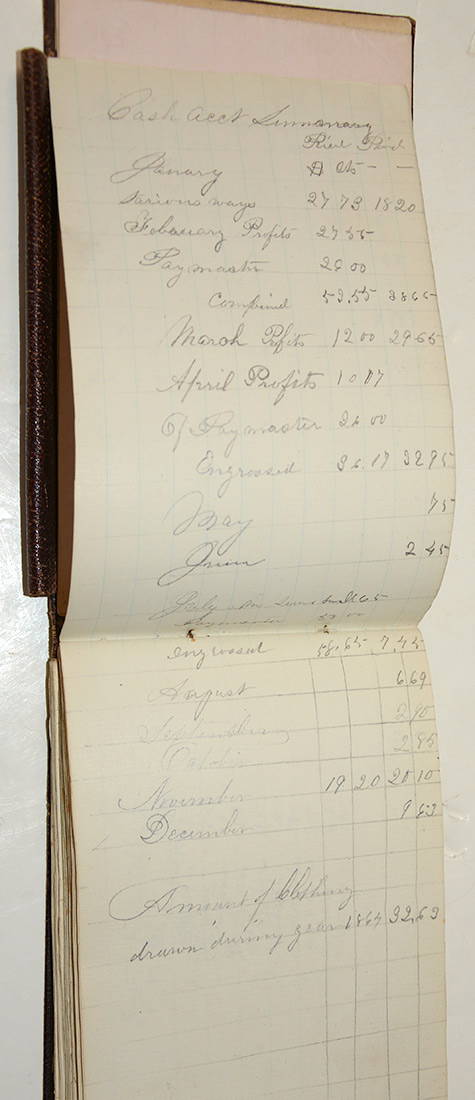 Cash acct Summary
Ried Paid
January $ cts — —
Various ways 27 73 18 20
Febuary Profits 27 55
Paymaster 26 00
Combined 53.55 38 65
March Pofits 12 00 29 65
April Profits 10 17
of Paymaster 26 00
Engrossed 36.17 32 95
May 75
June 2 45
July
Paymaster
engrossed 58.65 7.45
August 6 69
September 2 90
October 2 85
November 19 20 20 10
December 9 63
Amount of Clothing
drawn during year 1864 32,63